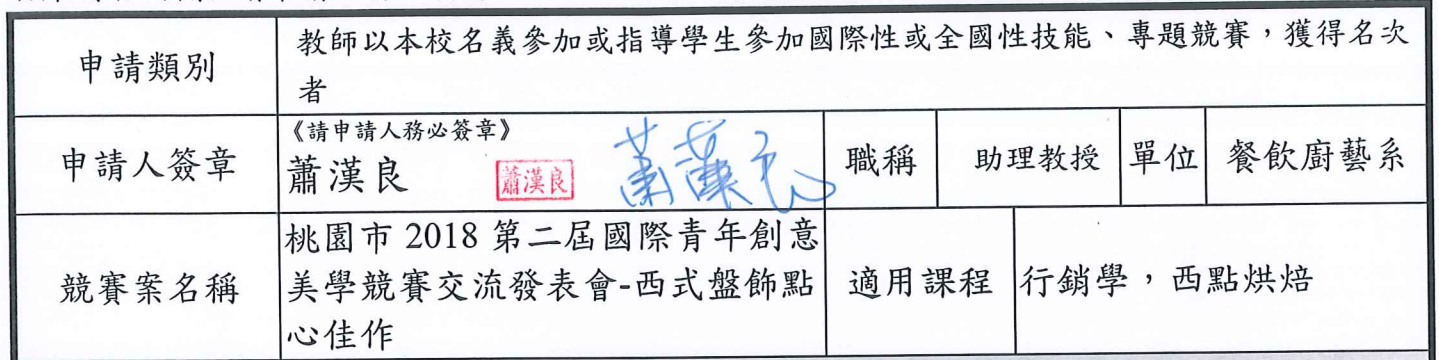 申請類別
教師以本校名義參加或指導學生參加國際性或全國性技能、專題競賽，獲得名次
者
申請人簽章
《請申請人務必簽章》
蕭漢良
蕭漢良
蕭漢良
職稱
助理教授
單位
餐飲廚藝系
競賽案名稱
桃園市 2018 第二屆國際青年創意
美學競賽交流發表會-西式盤飾點
心佳作
適用課程
行銷學，西點烘焙